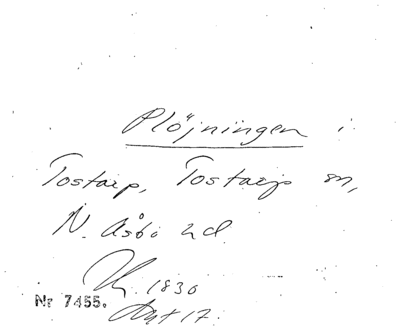 Plöjningen i
Tostarp, Tostarps sn,
N. Åsbo hd.
1830
Nr 7455.
17.